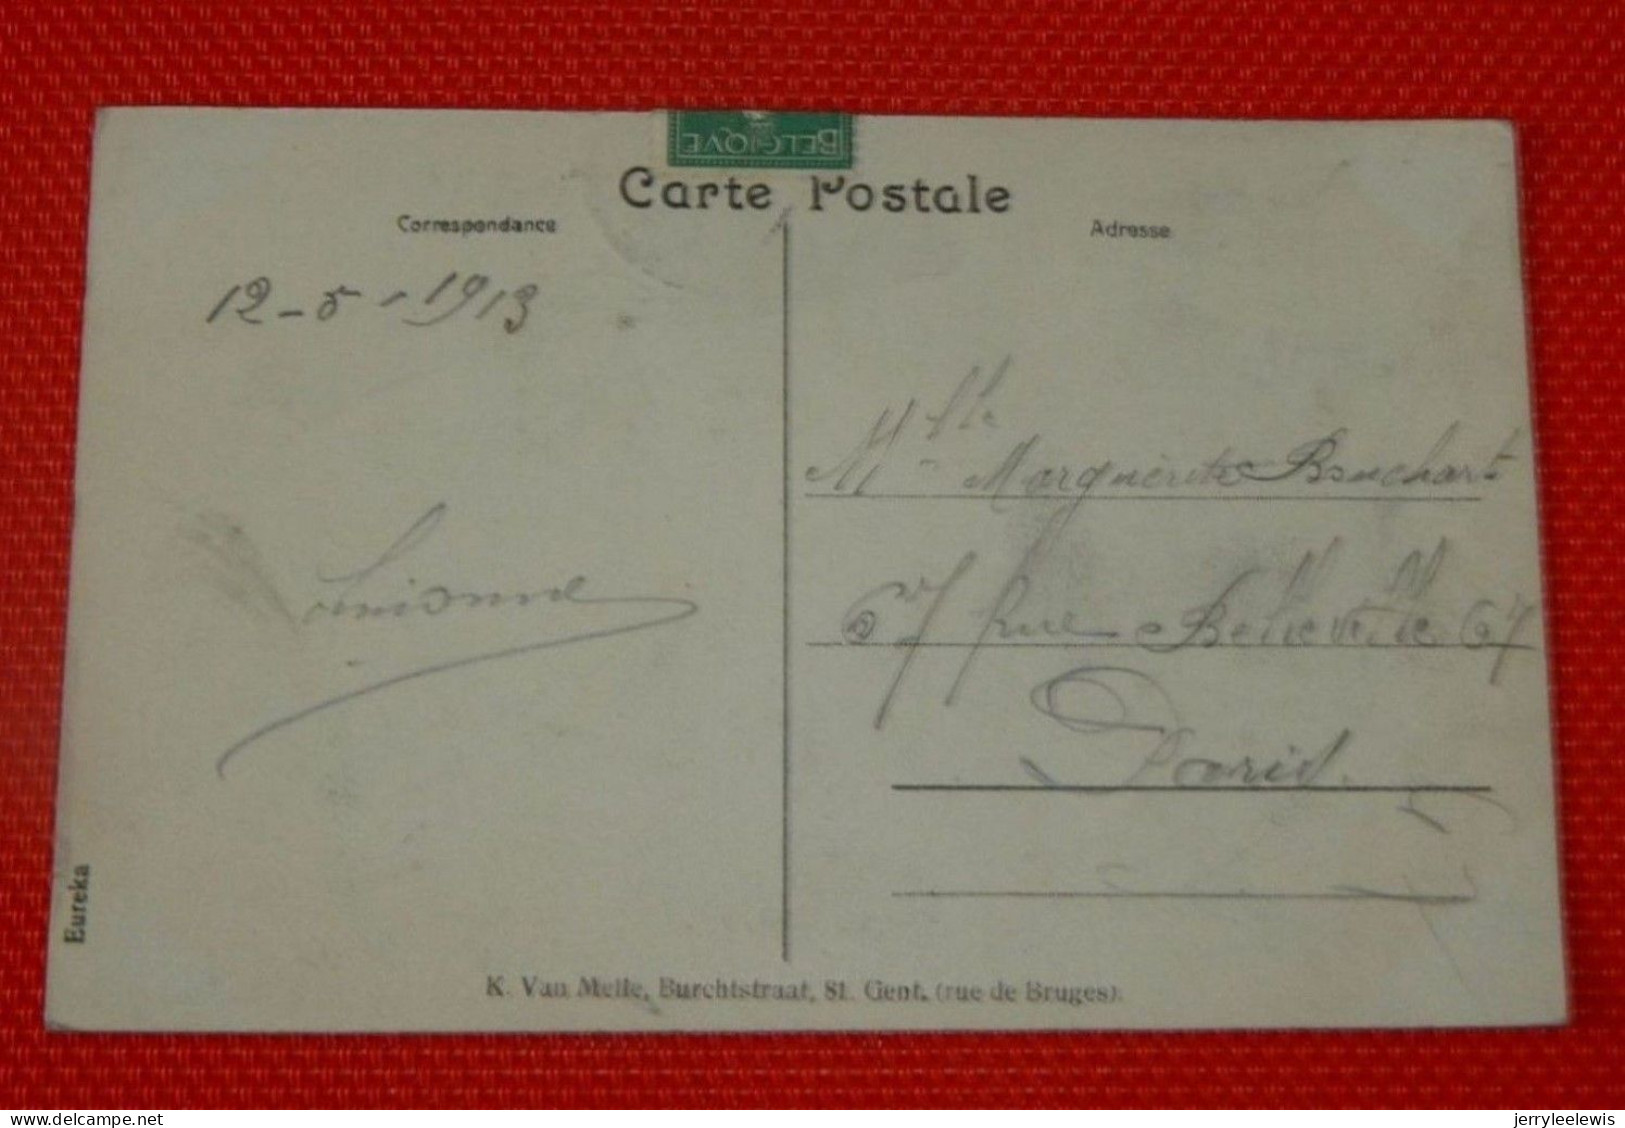 BELGIQVE
Carte Postale
Correspondance
Adresse
12-5-1913
Mlle Marguerite Bouchart
67 rue Belleville 67
Paris.
Eureka
K. Van Melle, Burchtstraat, 81. Gent. (rue de Bruges).
delcampe.net
jerryleelewis